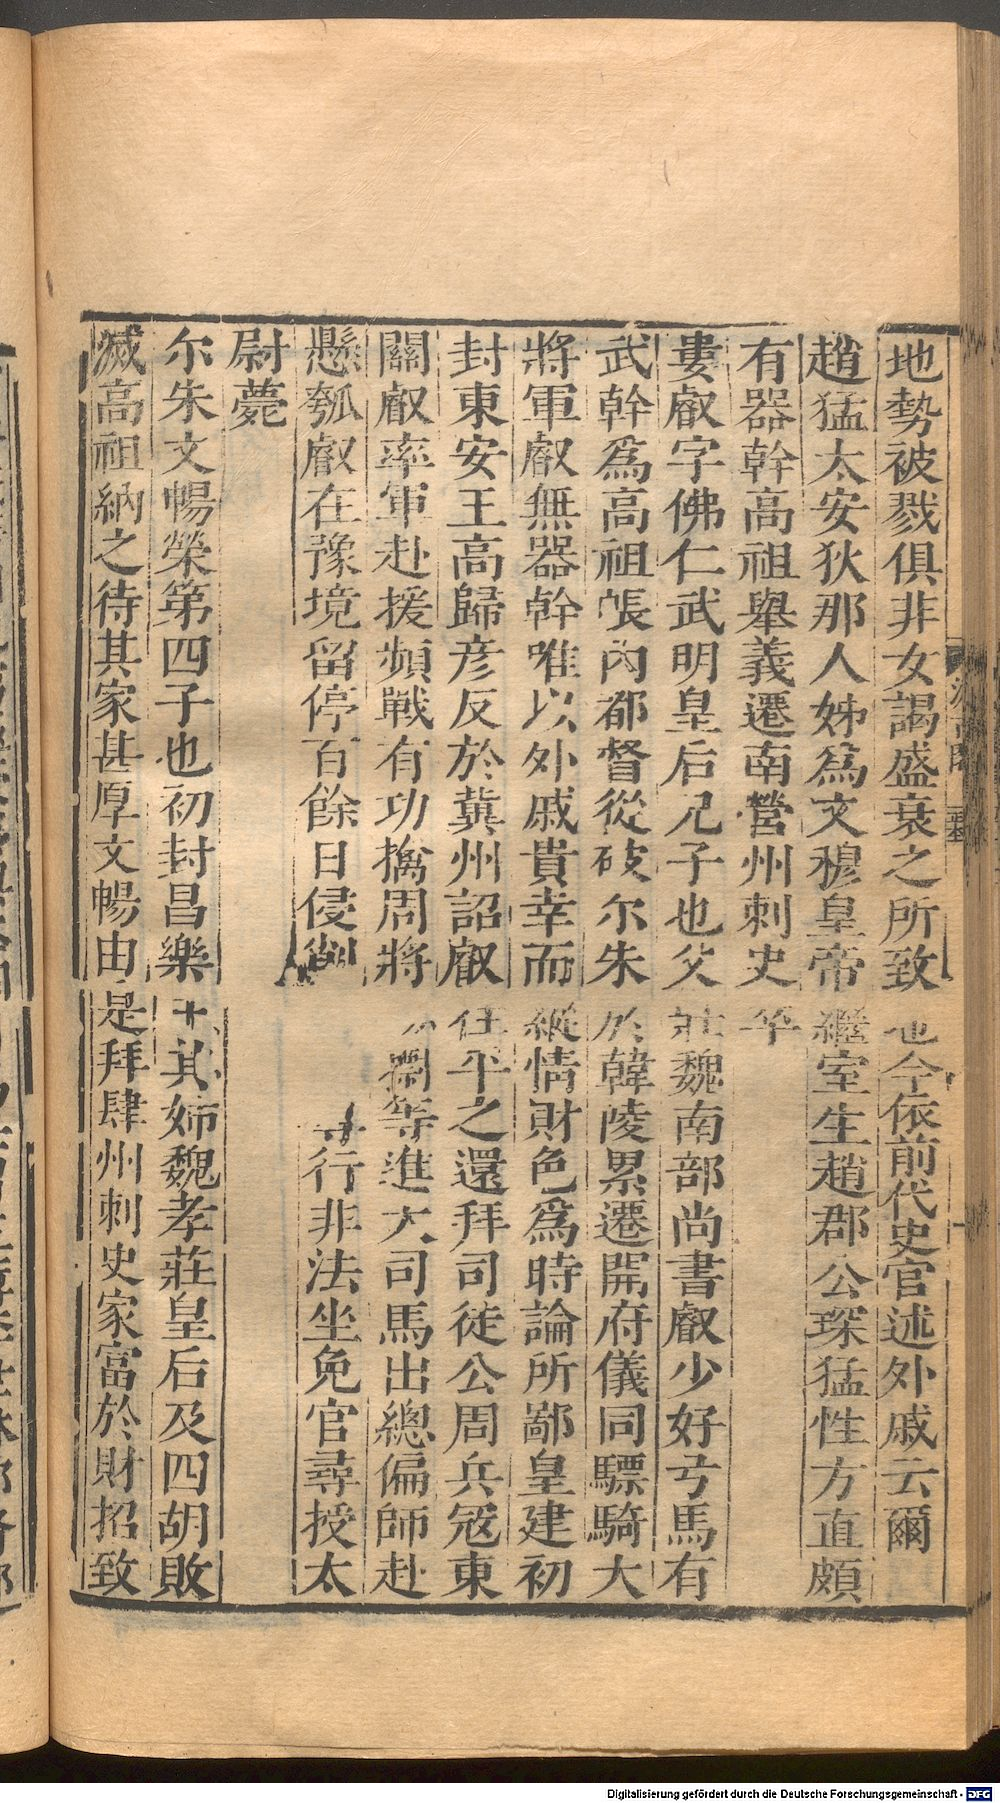 地勢被戮俱非女謁盛衰之所致也今依前代史官述外戚云爾
趙猛太安狄那人姊爲文穆皇帝繼室生趙郡公琛猛性方直頗
有器幹高祖舉義遷南營州刺史卒
婁叡字佛仁武明皇后兄子也父壯魏南部尚書叡少好弓馬有
武幹爲高祖帳內都督從破尔朱於韓陵累遷開府儀同驃騎大
將軍叡無器幹唯以外戚貴幸而縱情財色爲時論所鄙皇建初
封東安王高歸彥反於冀州詔叡往平之還拜司徒公周兵寇東
關叡率軍赴援頻戰有功擒周將等進大司馬出總偏師赴
懸瓠叡在豫境留停百餘日侵削行非法坐免官尋授太
尉薨
尔朱文暢榮第四子也初封昌樂王其姉魏孝莊皇后及四胡敗
滅高祖納之待其家甚厚文暢由是拜肆州刺史家富於財招致
Digitalisierung gefördert durch die Deutsche Forschungsgemeinschaft - DFG